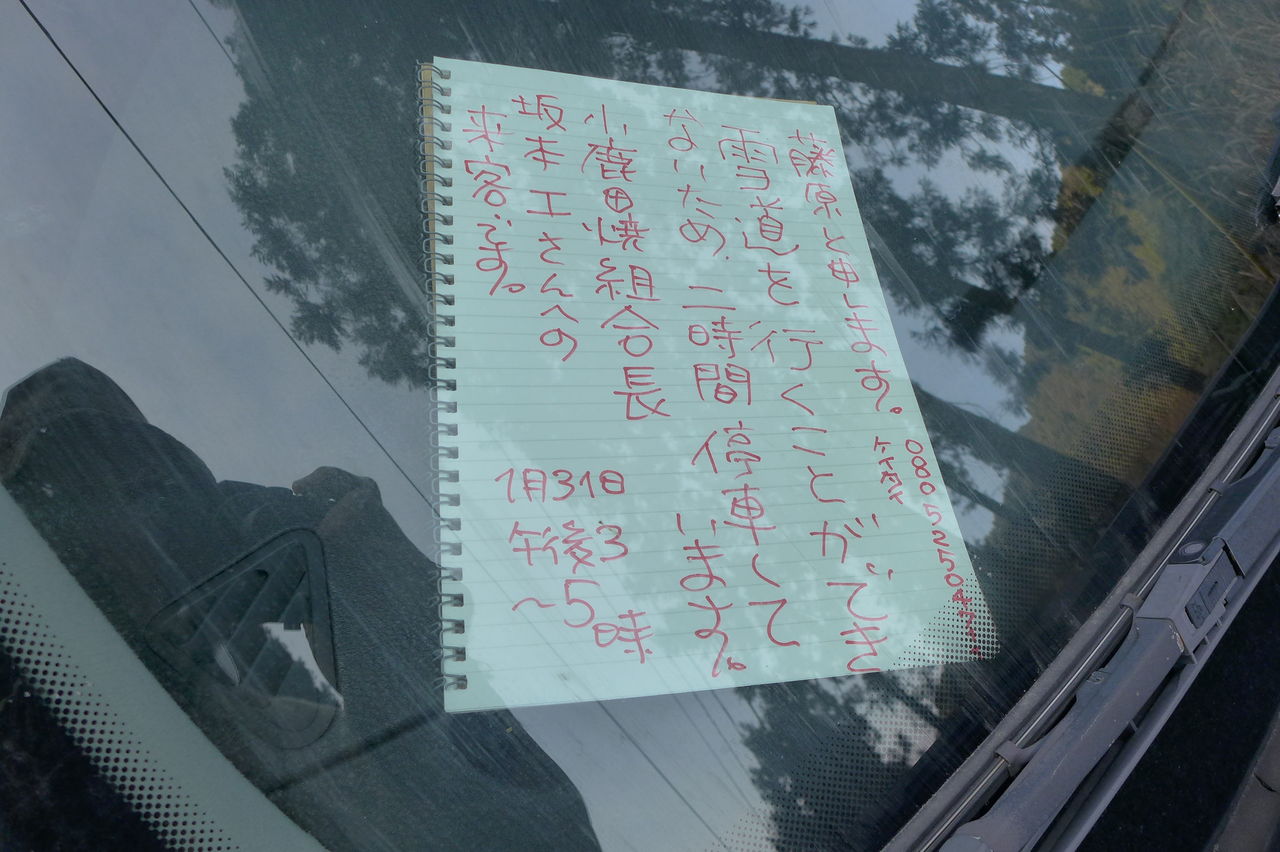 藤原と申します。
雪道を行くことができ
ないため、二時間停車して
います。
小鹿田焼組合長
坂本工さんへの
来客です。
1月31日
午後3
～5時